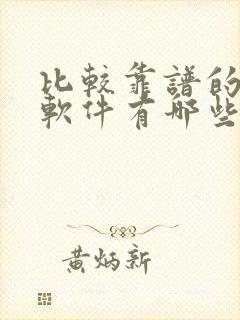 比較靠譜的
軟件有哪些
黃炳新